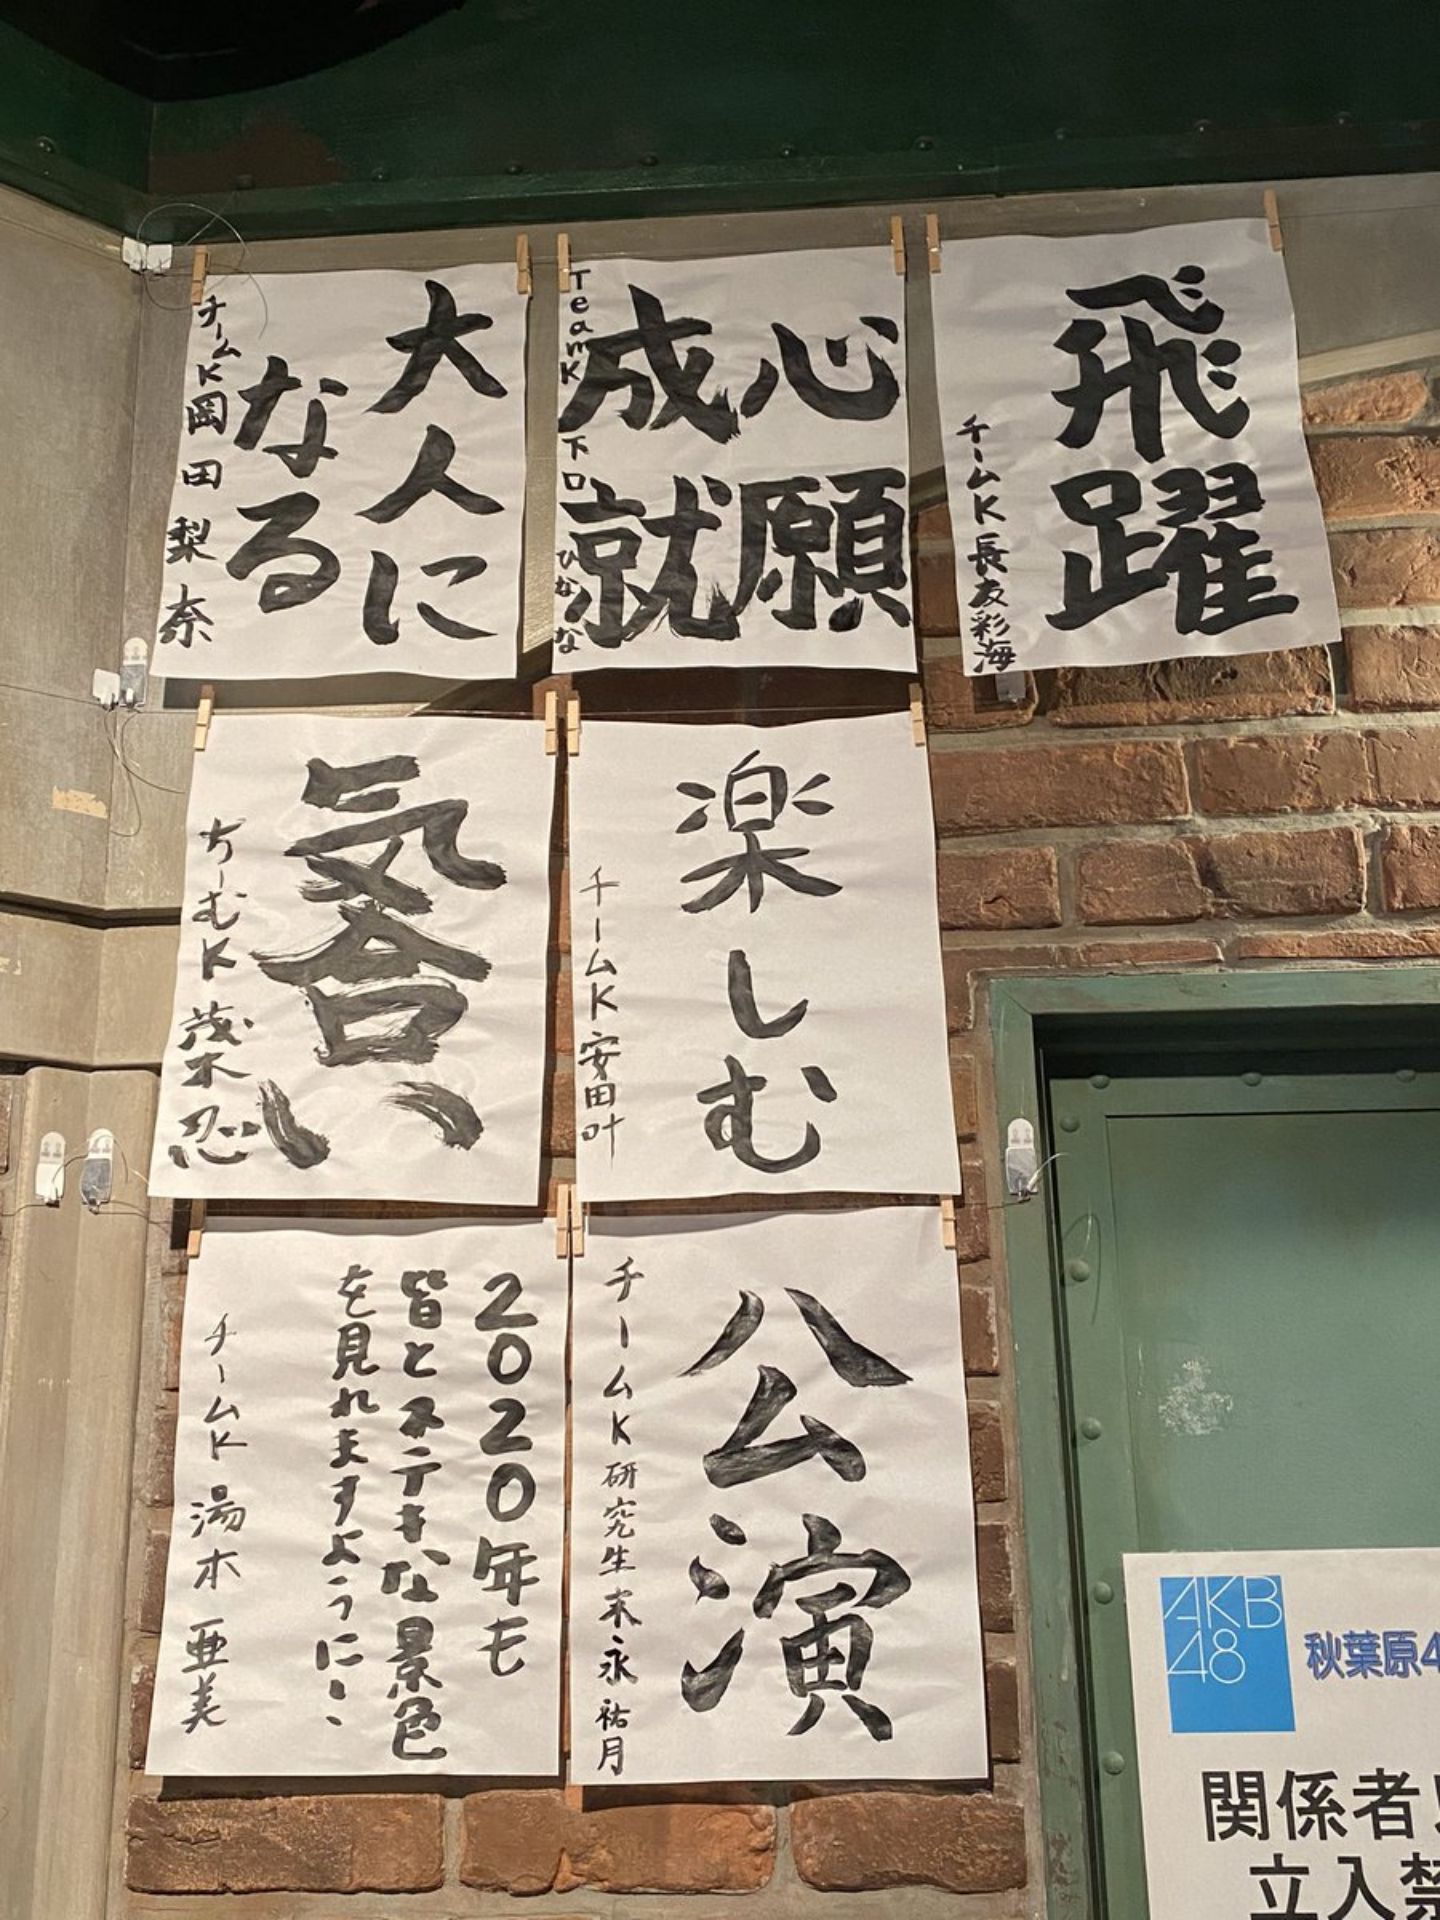 飛躍
チームK長友彩海
心願
成就
TeamK 下口ひなな
大人に
なる
チームK岡田梨奈
楽しむ
チームK安田叶
気合い
ちーむK茂木忍
公演
チームK研究生末永祐月
2020年も
皆とステキな景色
を見れますように、、
チームK 湯本亜美
AKB
48
秋葉原4
関係者
立入禁